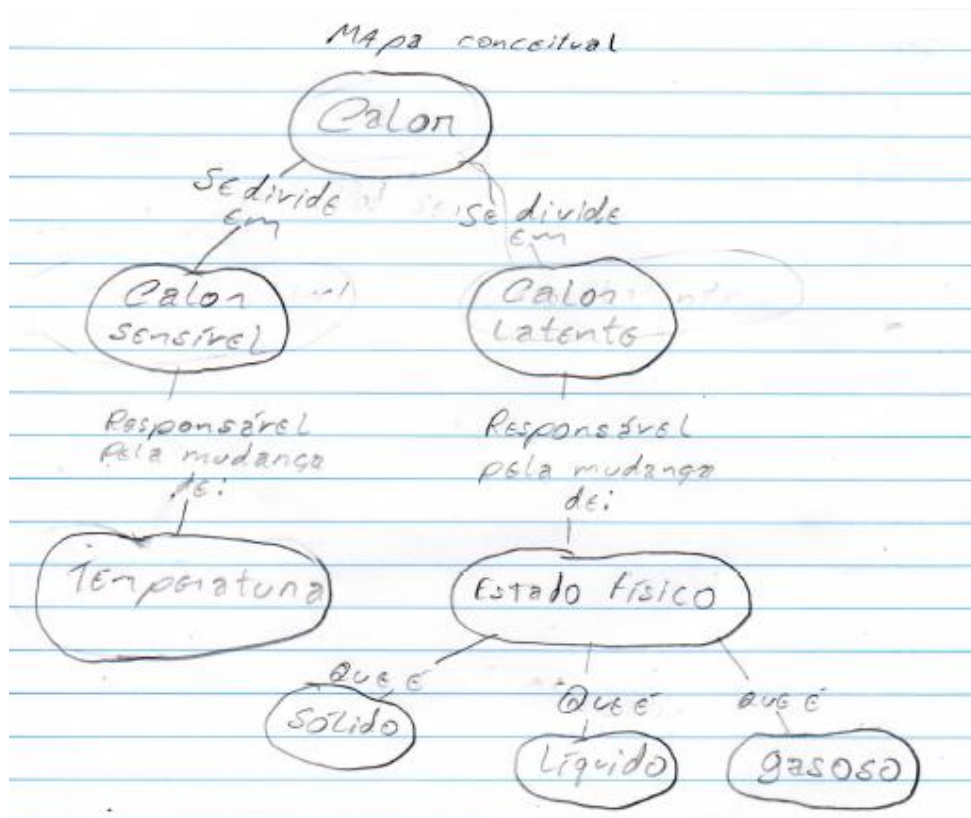 MApa conceitual
Calor
Se divide
em
Se divide
em
Calor
sensível
Calor
Latente
Responsável
pela mudança
de:
Responsável
pela mudança
de:
Temperatura
Estado físico
Que é
Sólido
Que é
Líquido
que é
gasoso